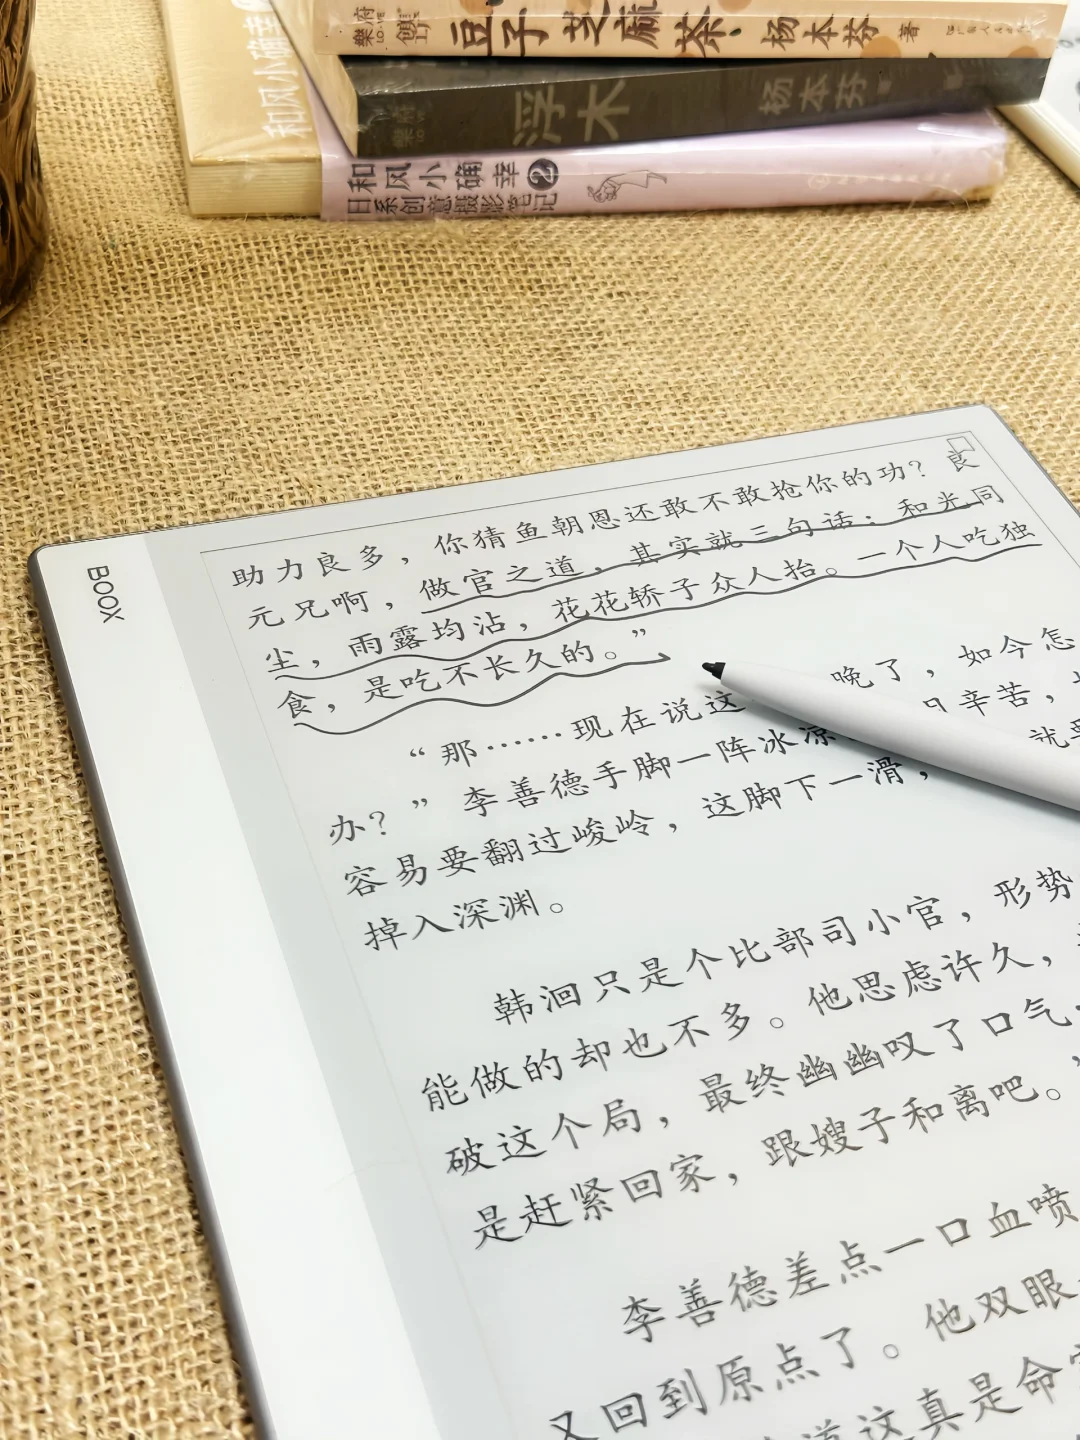 豆子芝麻茶
杨本芬 著
樂府
浮木
杨本芬
樂府
和风小确幸
和风小确幸2
日系创意摄影笔记
BOOX
助力良多，你猜鱼朝恩还敢不敢抢你的功？良
元兄啊，做官之道，其实就三句话：和光同
尘，雨露均沾，花花轿子众人抬。一个人吃独
食，是吃不长久的。”
“那……现在说这 晚了，如今怎
办？”李善德手脚一阵冰凉 日辛苦，
容易要翻过峻岭，这脚下一滑， 就要
掉入深渊。
韩洄只是个比部司小官，形势
能做的却也不多。他思虑许久，
破这个局，最终幽幽叹了口气
是赶紧回家，跟嫂子和离吧。”
李善德差点一口血喷
又回到原点了。他双眼
道这真是命